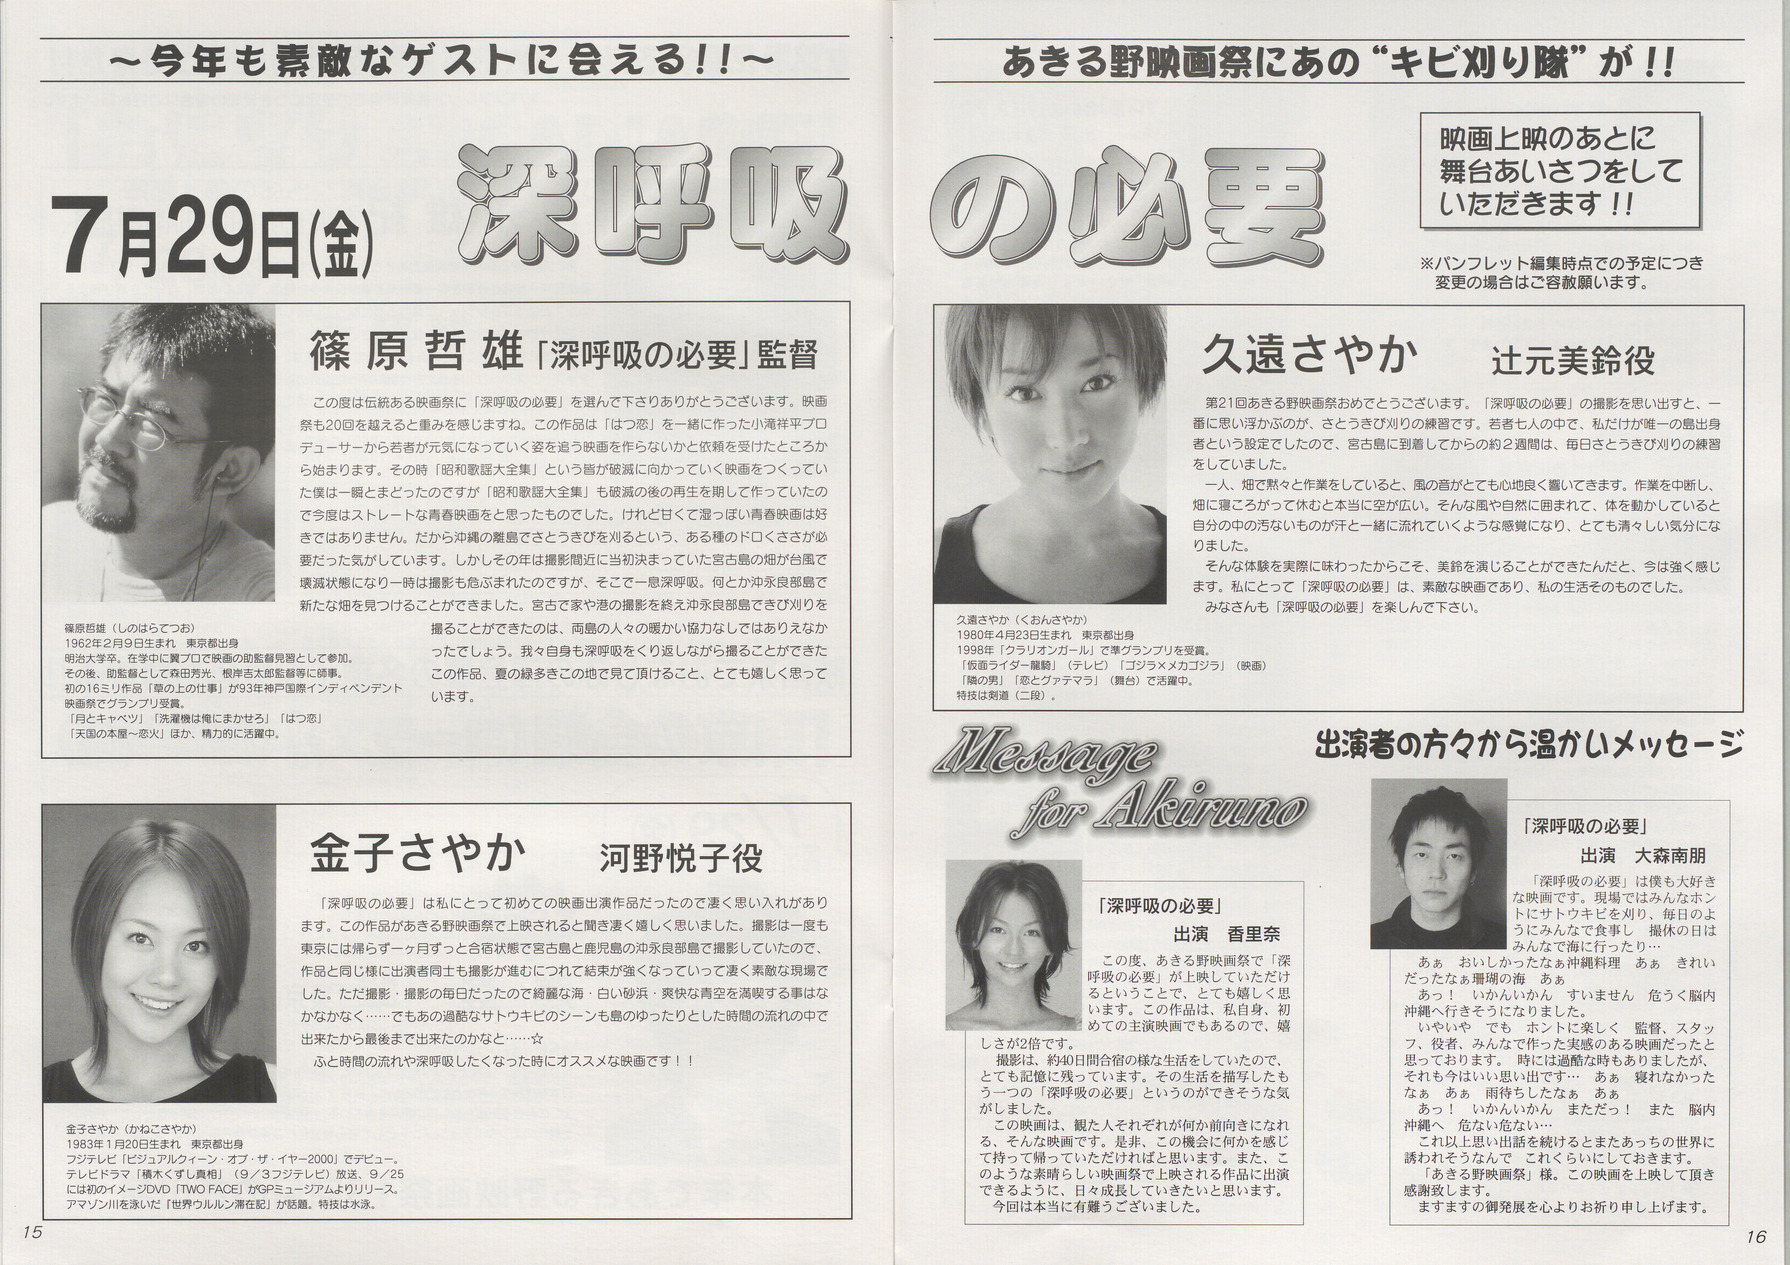 ～今年も素敵なゲストに会える!!～
7月29日(金)
深呼吸
篠原哲雄「深呼吸の必要」監督
この度は伝統ある映画祭に「深呼吸の必要」を選んで下さりありがとうございます。映画
祭も20回を越えると重みを感じますね。この作品は「はつ恋」を一緒に作った小滝祥平プロ
デューサーから若者が元気になっていく姿を追う映画を作らないかと依頼を受けたところか
ら始まります。その時「昭和歌謡大全集」という皆が破滅に向かっていく映画をつくってい
た僕は一瞬とまどったのですが「昭和歌謡大全集」も破滅の後の再生を期して作っていたの
で今度はストレートな青春映画をと思ったものでした。けれど甘くて湿っぽい青春映画は好
きではありません。だから沖縄の離島でさとうきびを刈るという、ある種のドロくささが必
要だった気がしています。しかしその年は撮影間近に当初決まっていた宮古島の畑が台風で
壊滅状態になり一時は撮影も危ぶまれたのですが、そこで一息深呼吸。何とか沖永良部島で
新たな畑を見つけることができました。宮古で家や港の撮影を終え沖永良部島できび刈りを
撮ることができたのは、両島の人々の暖かい協力なしではありえなか
ったでしょう。我々自身も深呼吸をくり返しながら撮ることができた
この作品、夏の緑多きこの地で見て頂けること、とても嬉しく思って
います。
篠原哲雄（しのはらてつお）
1962年２月９日生まれ　東京都出身
明治大学卒。在学中に翼プロで映画の助監督見習として参加。
その後、助監督として森田芳光、根岸吉太郎監督等に師事。
初の16ミリ作品「草の上の仕事」が93年神戸国際インディペンデント
映画祭でグランプリ受賞。
「月とキャベツ」「洗濯機は俺にまかせろ」「はつ恋」
「天国の本屋～恋火」ほか、精力的に活躍中。
金子さやか　河野悦子役
「深呼吸の必要」は私にとって初めての映画出演作品だったので凄く思い入れがあり
ます。この作品があきる野映画祭で上映されると聞き凄く嬉しく思いました。撮影は一度も
東京には帰らず一ヶ月ずっと合宿状態で宮古島と鹿児島の沖永良部島で撮影していたので、
作品と同じ様に出演者同士も撮影が進むにつれて結束が強くなっていって凄く素敵な現場で
した。ただ撮影・撮影の毎日だったので綺麗な海・白い砂浜・爽快な青空を満喫する事はな
かなかなく……でもあの過酷なサトウキビのシーンも島のゆったりとした時間の流れの中で
出来たから最後まで出来たのかなと……☆
ふと時間の流れや深呼吸したくなった時にオススメな映画です！！
金子さやか（かねこさやか）
1983年１月20日生まれ　東京都出身
フジテレビ「ビジュアルクィーン・オブ・ザ・イヤー2000」でデビュー。
テレビドラマ「積木くずし真相」（９／３フジテレビ）放送、９／25
には初のイメージDVD「TWO FACE」がGPミュージアムよりリリース。
アマゾン川を泳いだ「世界ウルルン滞在記」が話題。特技は水泳。
15
あきる野映画祭にあの“キビ刈り隊”が!!
の必要
映画上映のあとに
舞台あいさつをして
いただきます!!
※パンフレット編集時点での予定につき
変更の場合はご容赦願います。
久遠さやか　辻元美鈴役
第21回あきる野映画祭おめでとうございます。「深呼吸の必要」の撮影を思い出すと、一
番に思い浮かぶのが、さとうきび刈りの練習です。若者七人の中で、私だけが唯一の島出身
者という設定でしたので、宮古島に到着してからの約２週間は、毎日さとうきび刈りの練習
をしていました。
一人、畑で黙々と作業をしていると、風の音がとても心地良く響いてきます。作業を中断し、
畑に寝ころがって休むと本当に空が広い。そんな風や自然に囲まれて、体を動かしていると
自分の中の汚ないものが汗と一緒に流れていくような感覚になり、とても清々しい気分にな
りました。
そんな体験を実際に味わったからこそ、美鈴を演じることができたんだと、今は強く感じ
ます。私にとって「深呼吸の必要」は、素敵な映画であり、私の生活そのものでした。
みなさんも「深呼吸の必要」を楽しんで下さい。
久遠さやか（くおんさやか）
1980年４月23日生まれ　東京都出身
1998年「クラリオンガール」で準グランプリを受賞。
「仮面ライダー龍騎」（テレビ）「ゴジラ×メカゴジラ」（映画）
「隣の男」「恋とグァテマラ」（舞台）で活躍中。
特技は剣道（二段）。
Message
for Akiruno
出演者の方々から温かいメッセージ
「深呼吸の必要」
出演　香里奈
この度、あきる野映画祭で「深
呼吸の必要」が上映していただけ
るということで、とても嬉しく思
います。この作品は、私自身、初
めての主演映画でもあるので、嬉
しさが2倍です。
撮影は、約40日間合宿の様な生活をしていたので、
とても記憶に残っています。その生活を描写したも
う一つの「深呼吸の必要」というのができそうな気
がしました。
この映画は、観た人それぞれが何か前向きになれ
る、そんな映画です。是非、この機会に何かを感じ
て持って帰っていただければと思います。また、こ
のような素晴らしい映画祭で上映される作品に出演
できるように、日々成長していきたいと思います。
今回は本当に有難うございました。
「深呼吸の必要」
出演　大森南朋
「深呼吸の必要」は僕も大好き
な映画です。現場ではみんなホン
トにサトウキビを刈り、毎日のよ
うにみんなで食事し　撮休の日は
みんなで海に行ったり…
あぁ　おいしかったなぁ沖縄料理　あぁ　きれい
だったなぁ珊瑚の海　あぁ
あっ！　いかんいかん　すいません　危うく脳内
沖縄へ行きそうになりました。
いやいや　でも　ホントに楽しく　監督、スタッ
フ、役者、みんなで作った実感のある映画だったと
思っております。　時には過酷な時もありましたが、
それも今はいい思い出です…　あぁ　寝れなかった
なぁ　あぁ　雨待ちしたなぁ　あぁ
あっ！　いかんいかん　まただっ！　また　脳内
沖縄へ　危ない危ない…
これ以上思い出話を続けるとまたあっちの世界に
誘われそうなんで　これくらいにしておきます。
「あきる野映画祭」様。この映画を上映して頂き
感謝致します。
ますますの御発展を心よりお祈り申し上げます。
16